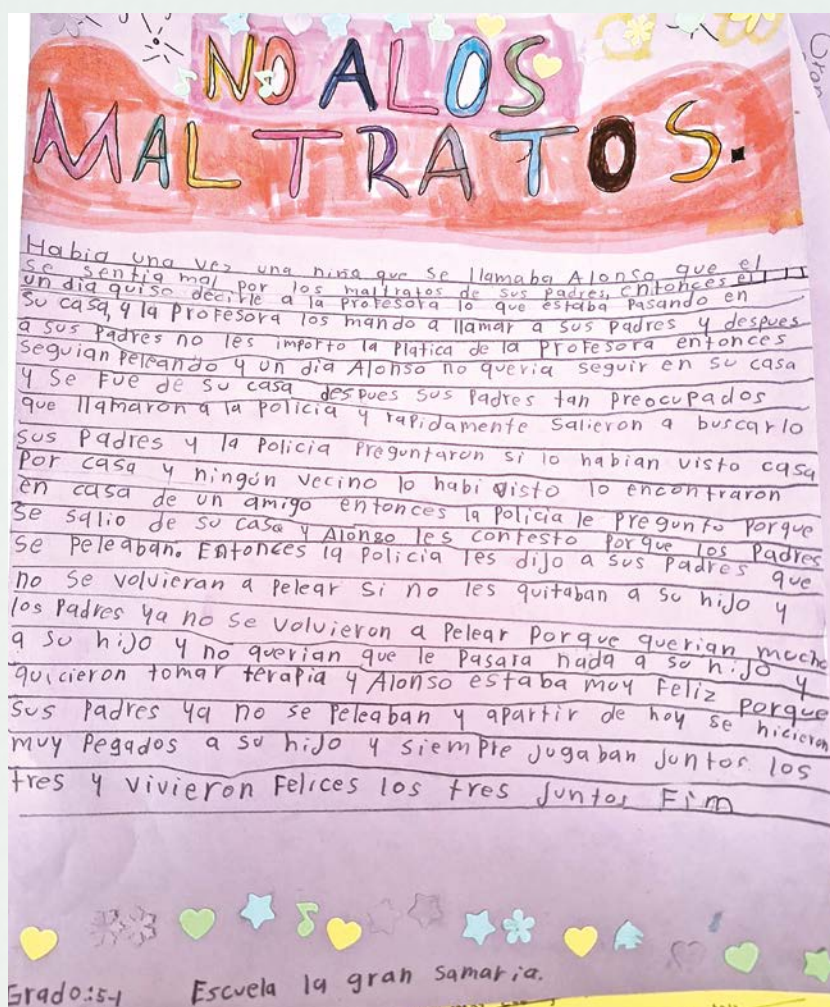 NO A LOS
MALTRATOS.
Habia una vez una niño que se llamaba Alonso que el
se sentia mal por los maltratos de sus padres, entonces el
un dia quiso decirle a la profesora lo que estaba pasando en
su casa, y la profesora los mando a llamar a sus padres y despues
a sus padres no les importo la platica de la profesora entonces
seguian peleando y un dia Alonso no queria seguir en su casa
y se fue de su casa despues sus padres tan preocupados
que llamaron a la policia y rapidamente salieron a buscarlo
sus padres y la policia preguntaron si lo habian visto casa
por casa y ningún vecino lo habi visto lo encontraron
en casa de un amigo entonces la policia le pregunto porque
se salio de su casa y Alonso les contesto porque los padres
se peleaban. Entonces la policia les dijo a sus padres que
no se volvieran a pelear si no les quitaban a su hijo y
los padres ya no se volvieron a pelear porque querian mucho
a su hijo y no querian que le pasara nada a su hijo y
quicieron tomar terapia y Alonso estaba muy feliz porque
sus padres ya no se peleaban y apartir de hoy se hicieron
muy pegados a su hijo y siempre jugaban juntos los
tres y vivieron felices los tres juntos Fim
Grado:5-1 Escuela la gran samaria.